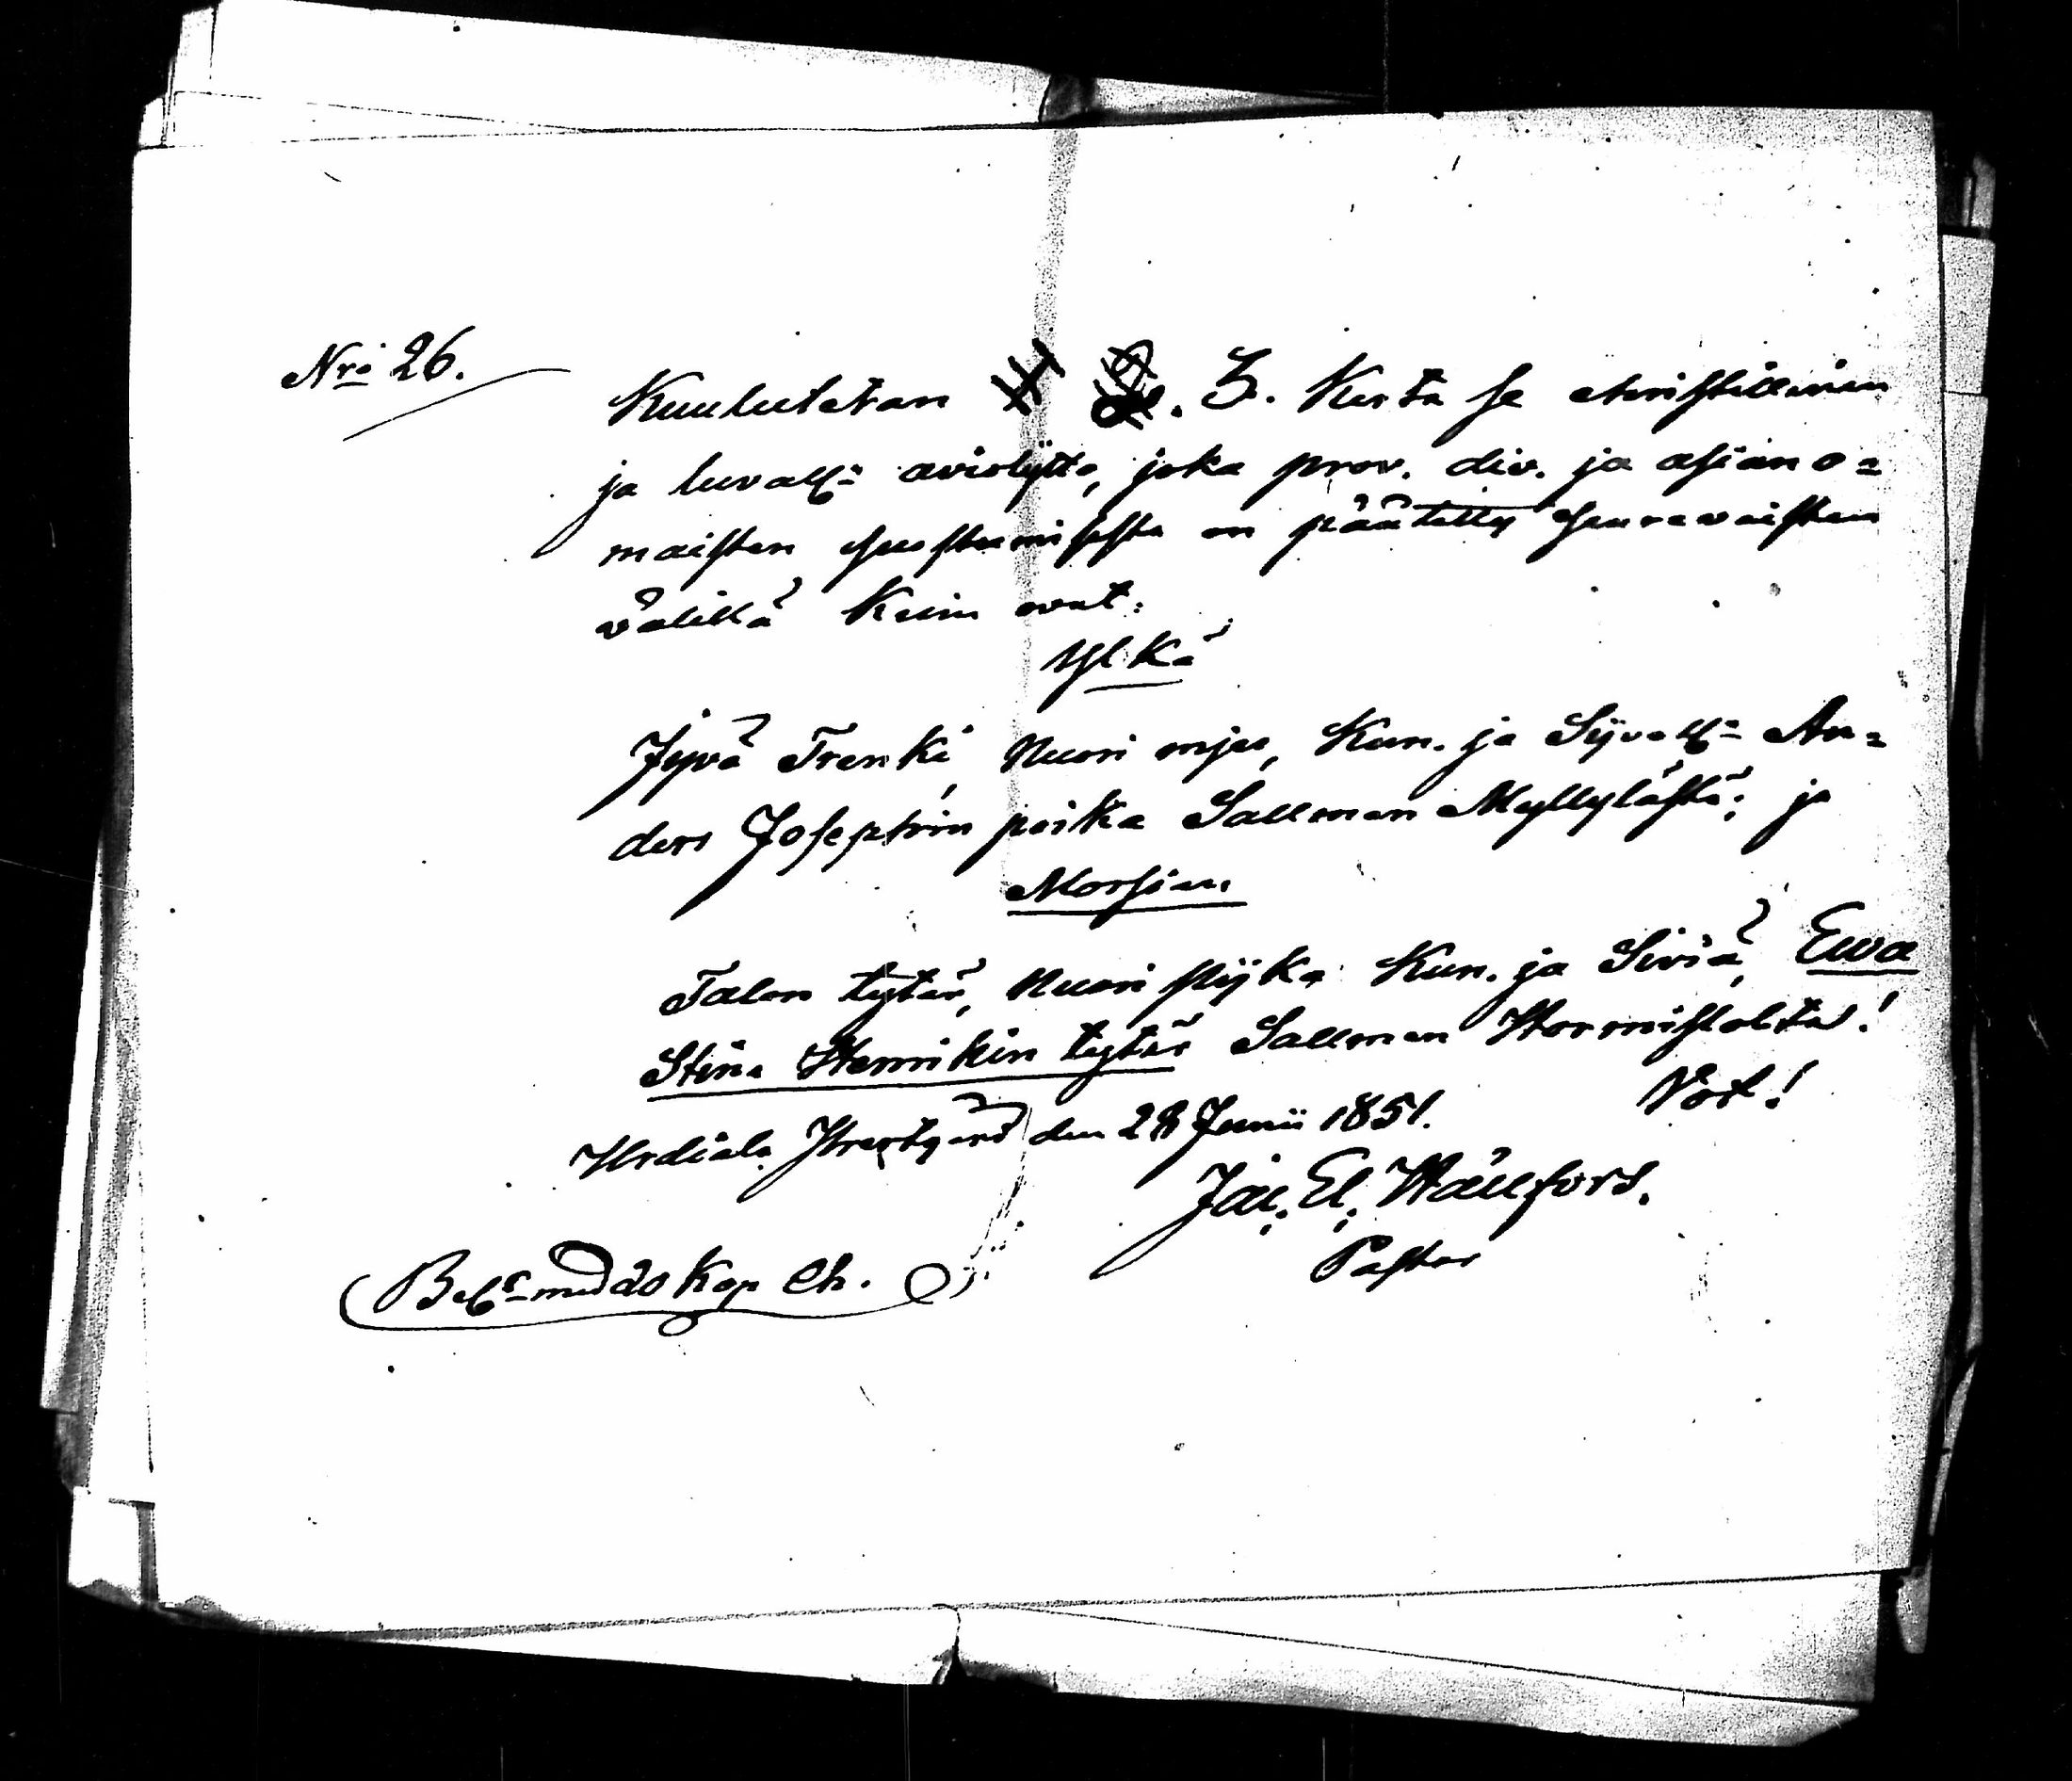 Nro 26.
Kuulutetan 3. Kerta se christillinen
ja luvall:n avioliitto, joka prov. div. ja asiano=
maisten suostumisesta on päätetty seuravaisten
välillä kuin ovat:
Ylkä
Jyvä Trenki, Nuori mjes, Kun. ja Syväll:n An=
ders Josephin poika Sallmen Myllylästä; ja
Morsian
Talon tytär, Nuori pijka Kun. ja Siviä, Ewa
Stina Henrikin tytär Sallmen Hormistolta!
Vot!
Urdiala Prestgård den 28 Junii 1851.
Jac. El. Wallfors.
Pastor
med do Kop Ch.